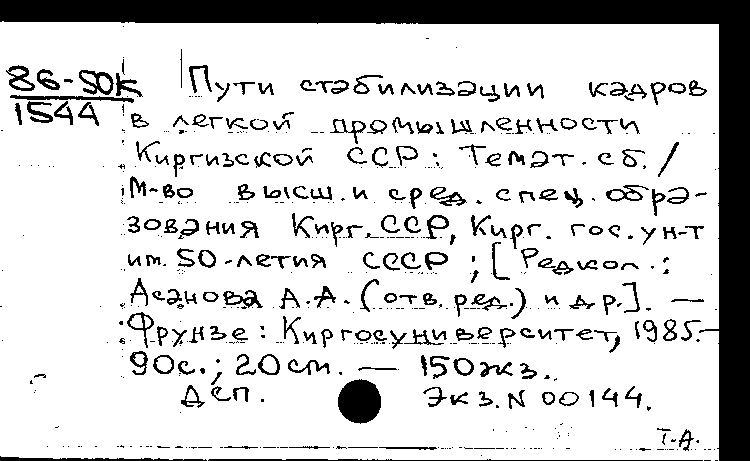 86-50К Пути стабилизации кадров
1544 в легкой промышленности
Киргизской ССР: Темат. сб. /
М-во высш. и сред. спец. обра-
зования Кирг. ССР, Кирг. гос. ун-т
им. 50-летия СССР ; [Редкол.:
Асанова А.А. (отв. ред.) и др.]. —
Фрунзе: Киргосуниверситет, 1985.—
90с.; 20см. — 150экз.
Дсп. Экз. N 00144.
Т-А.